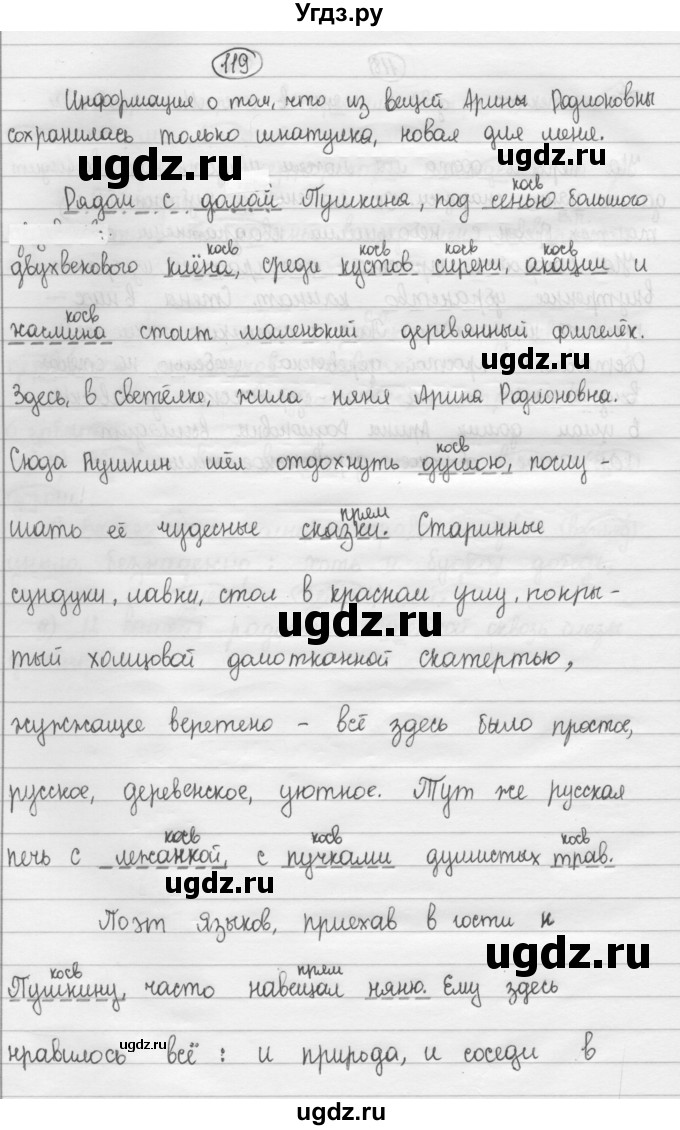 Угдз.ру
119
Информация о том, что из вещей Арины Родионовны
сохранилась только шкатулка, новая для меня.
ugdz.ru ugdz.ru
косв
Рядом с домом Пушкина, под сенью большого
косв косв косв косв
двухвекового клёна, среди кустов сирени, акации и
косв
жасмина стоит маленький деревянный флигелёк.
ugdz.ru ugdz.ru
Здесь, в светёлке, жила няня Арина Родионовна.
косв
Сюда Пушкин шёл отдохнуть душою, послу-
прям
шать её чудесные сказки. Старинные
сундуки, лавки, стол в красном углу, покры-
ugdz.ru
тый холщовой домотканной скатертью,
жужжащее веретено - всё здесь было простое,
русское, деревенское, уютное. Тут же русская
косв косв косв
печь с лежанкой, с пучками душистых трав.
ugdz.ru
Поэт Языков, приехав в гости к
ugdz.ru
косв прям
Пушкину, часто навещал няню. Ему здесь
ugdz.ru
нравилось всё: и природа, и соседи в
ugdz.ru